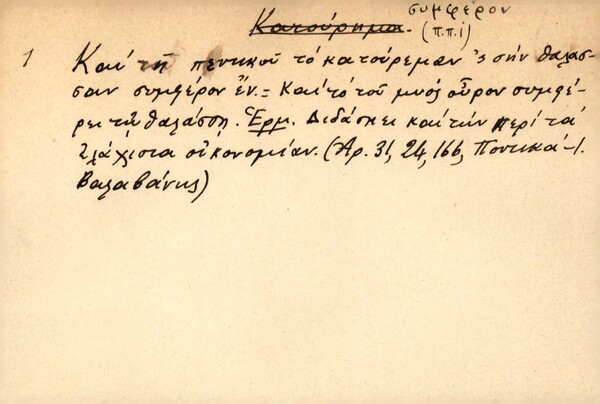 συμφέρον
Κατούρημα. (π.π.ἰ)
1 Καὶ τῆ πεντικοῦ τὸ κατούρεμαν 'ς σὴν θάλασ-
σαν συμφέρον ἔν. = Καὶ τὸ τοῦ μυὸς οὖρον συμφέ-
ρει τῇ θαλάσσῃ. Ἑρμ. Διδάσκει καὶ τὴν περὶ τὰ
ἐλάχιστα οἰκονομίαν. (Ἀρ. 31, 24, 166, Ποντικά - Ι.
Βαλαβάνης)